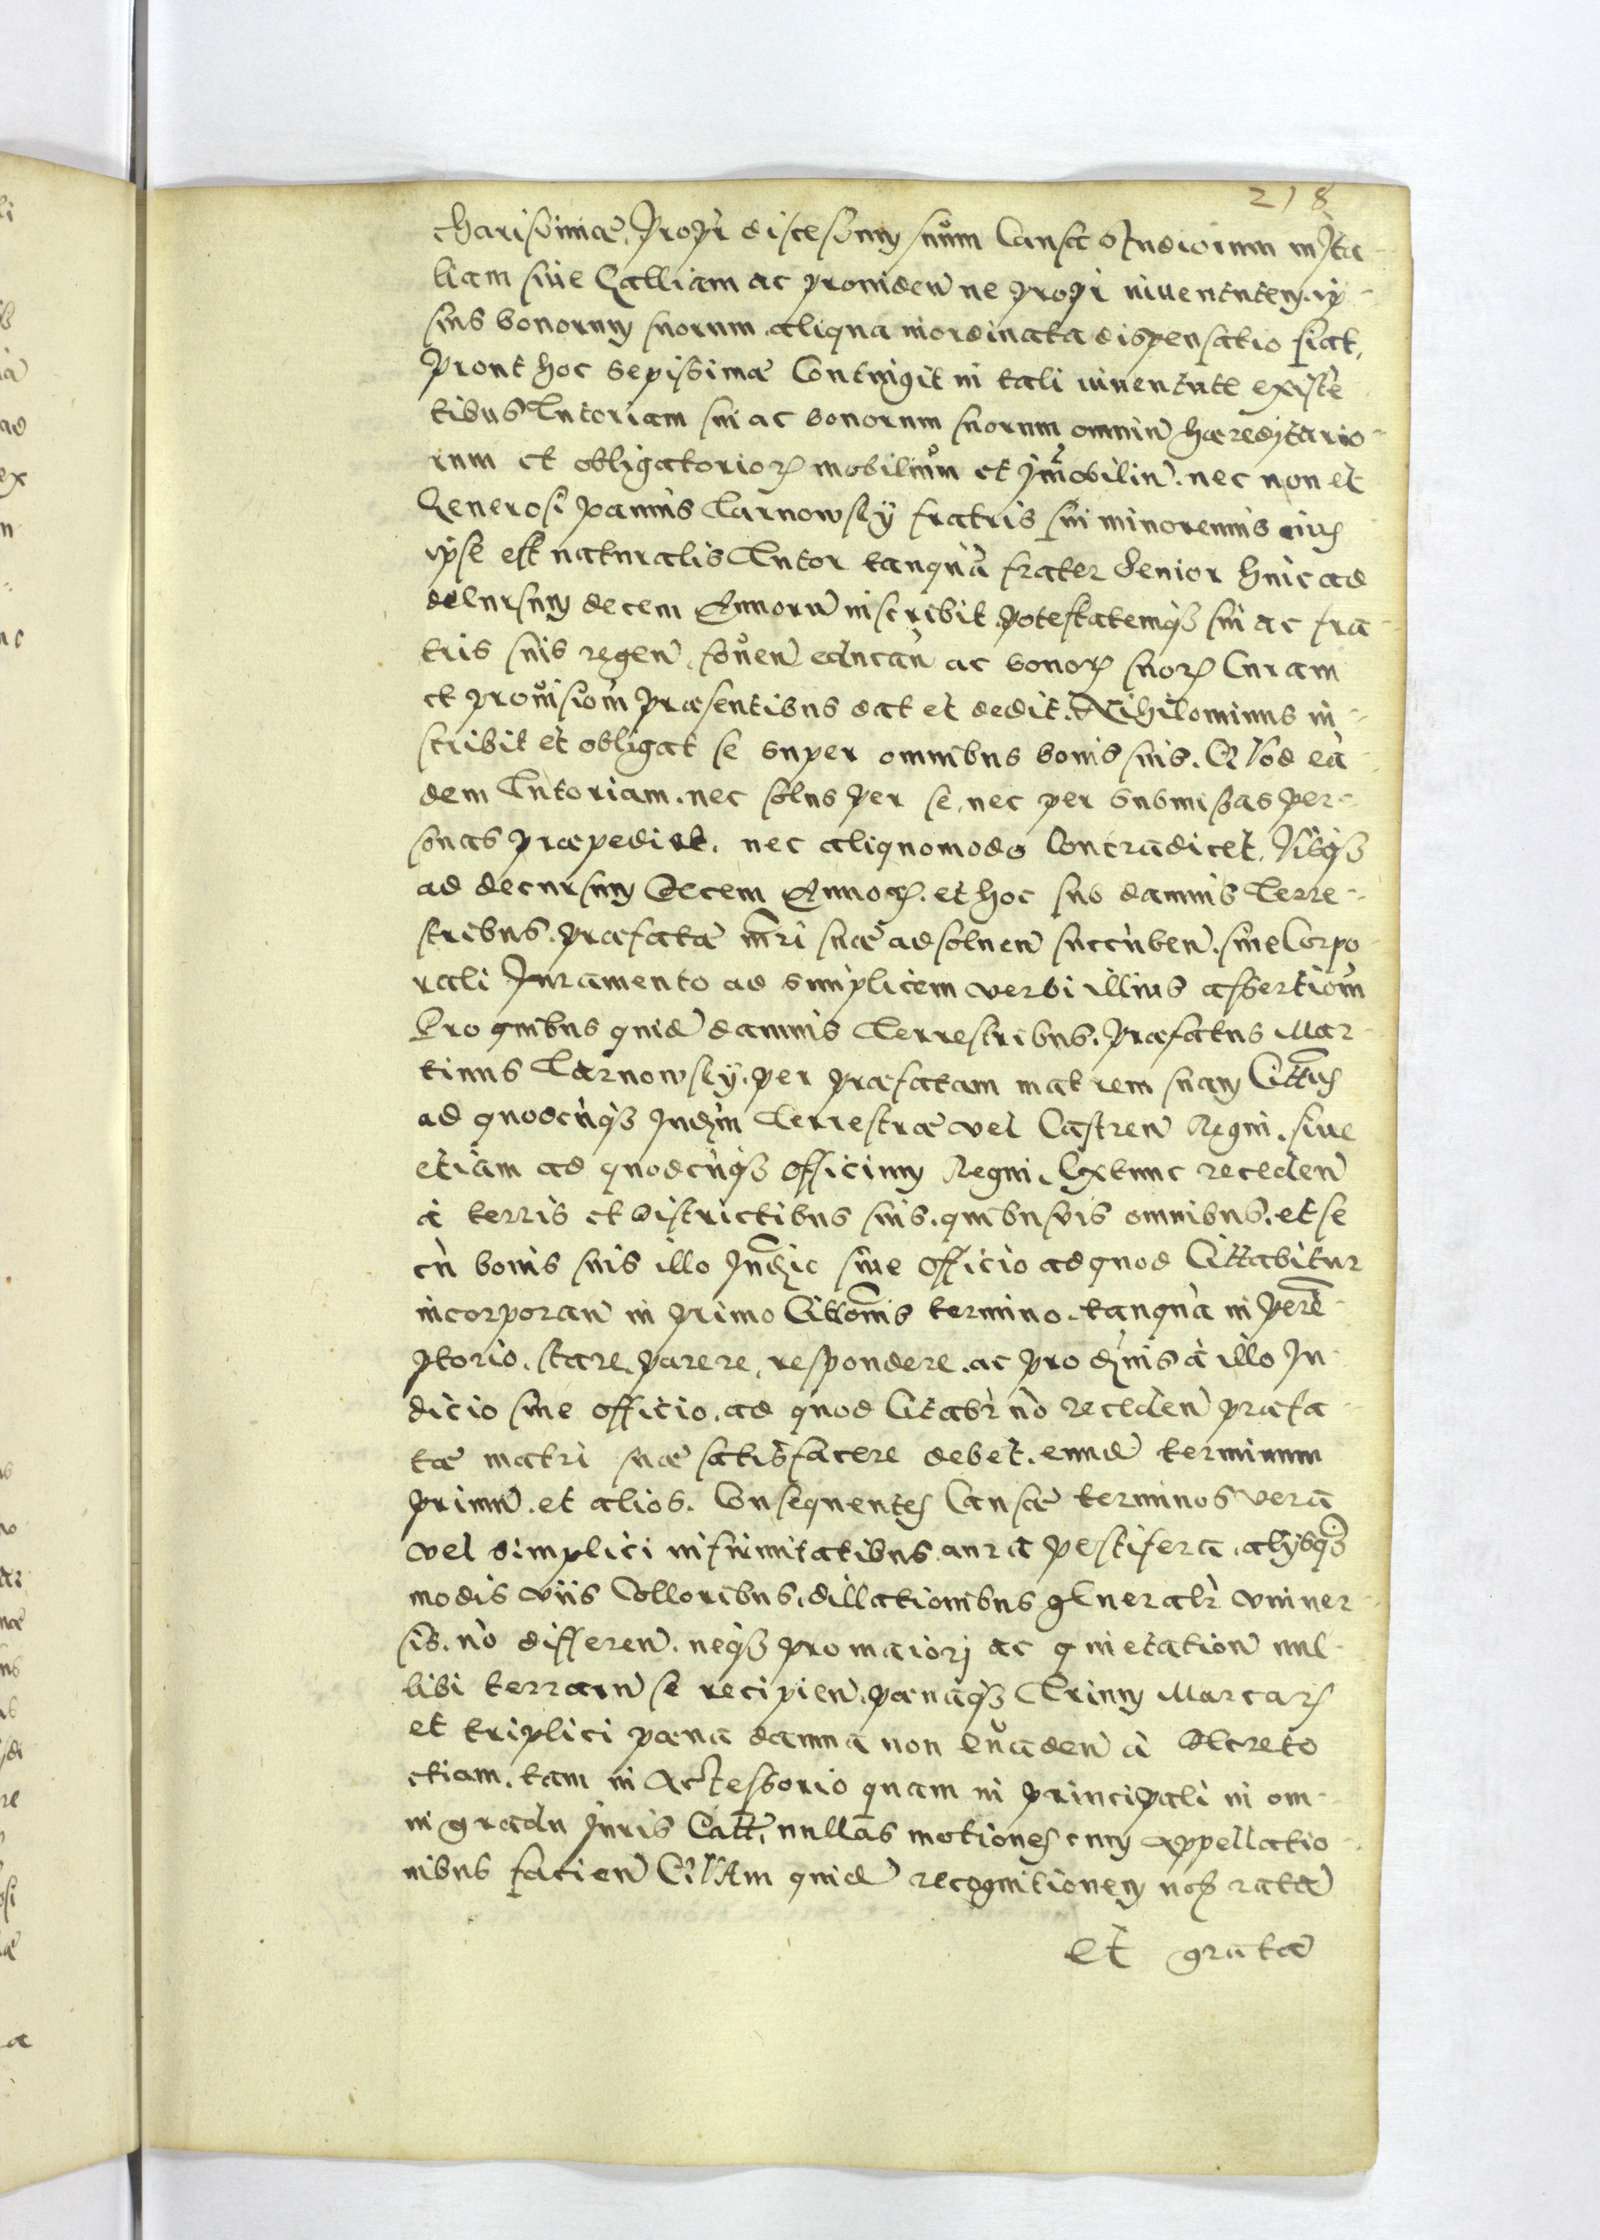 218
charissimæ, Propr discessum suum Causa studiorum in Ita
liam siue Galliam ac prouiden ne propr iuuentutem ip
sius bonorum suorum aliqua inordinata dispensatio fiat,
Prout hoc sepissimæ Contingit in tali iuuentute existē
tibus Tutoriam sui ac bonorum suorum omniū hæreditario
rum et obligatorioꝝ mobilium et im̄obiliū. nec non et
Generosi Joannis Tarnowsky fratris sui minorennis cuius
ipse est naturalis Tutor tanquā frater Senior huic ad
decursum decem Annorū inscribit, potestatemqȝ sui ac fra
tris suis regen̄, fouen̄ educan̄ ac bonoꝝ suoꝝ Curam
et prouisiom̄ Præsentibus dat et dedit. Nihilominus in
scribit et obligat se super omnibus bonis suis. Quod eā
dem Tutoriam, nec solus per se, nec per submissas per
sonas præpediet, nec aliquomodo Contradicet, Usqȝ
ad decursum Decem Annoꝝ. et hoc sub damnis Terre
stribus, præfatæ mr̄i suæ ad soluen̄ succūben̄. sine Corpo
rali Juramento ad simplicem verbi illius assertiom̄
Pro quibus quidē damnis Terrestribus, Præfatus Mar
tinus Tarnowsky, per præfatam matrem suam Cittatus
ad quodcūqȝ Judm̄ Terrestræ vel Castren̄ Regni, siue
etiam ad quodcūqȝ officium Regni, Extunc receden̄
à terris et Districtibus suis, quibusuis omnibus, et se
cū bonis suis illo Judic̄ siue officio ad quod Cittabitur
incorporan̄ in primo Citto͞nis termino, tanquā in Perē
ptorio, stare, parere, respondere, ac pro dm̄nis à illo Ju
dicio siue officio, ad quod Citabr̄ nō receden̄ præfa
tæ matri suæ satisfacere debet. eundē terminum
primū. et alios. Consequentes Causæ terminos vera
vel simplici infirmitatibus, aura pestifera, alysqȝ
modis viis Colloribus, dillationibus generalr̄ vniuer
sis, nō differen̄. neqȝ pro maiori ac quietation̄ nul
libi terrarū se recipien̄, pænāqȝ Trium Marcarꝝ
et triplici pæna damna non euaden̄ à Decreto
etiam, tam in Accessorio quam in principali in om
ni gradu Juris Catt, nullas motiones cum appellatio
nibus facien̄ Quam quidē recognitionem nos ratā
et grata